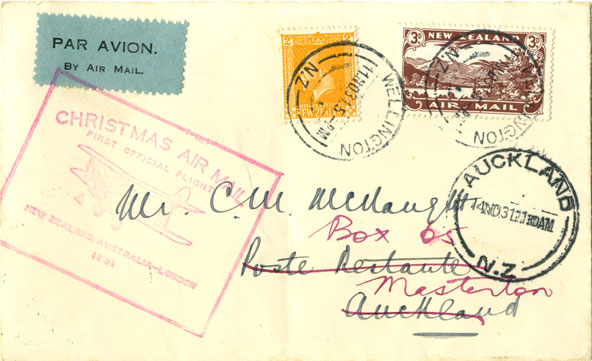 PAR AVION.
BY AIR MAIL.
NEW ZEALAND
3D 3D
AIR MAIL
WELLINGTON
N.Z.
CHRISTMAS AIR MAIL
FIRST OFFICIAL FLIGHT
NEW ZEALAND, AUSTRALIA-LONDON
1931
AUCKLAND
14NO31
N.Z
Mr. C. M. McNaught
Box 65
Poste Restante
Masterton
Auckland